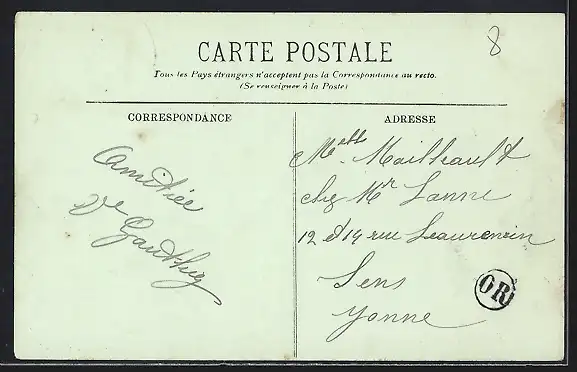 8
CARTE POSTALE
Tous les Pays étrangers n'acceptent pas la Correspondance au recto.
(Se renseigner à la Poste)
CORRESPONDANCE
Amitiée
Vve
Gauthey
ADRESSE
Melle Mailleault
chez Mr Lanne
12 et 14 rue Leaurencin
Sens
Yonne
OR